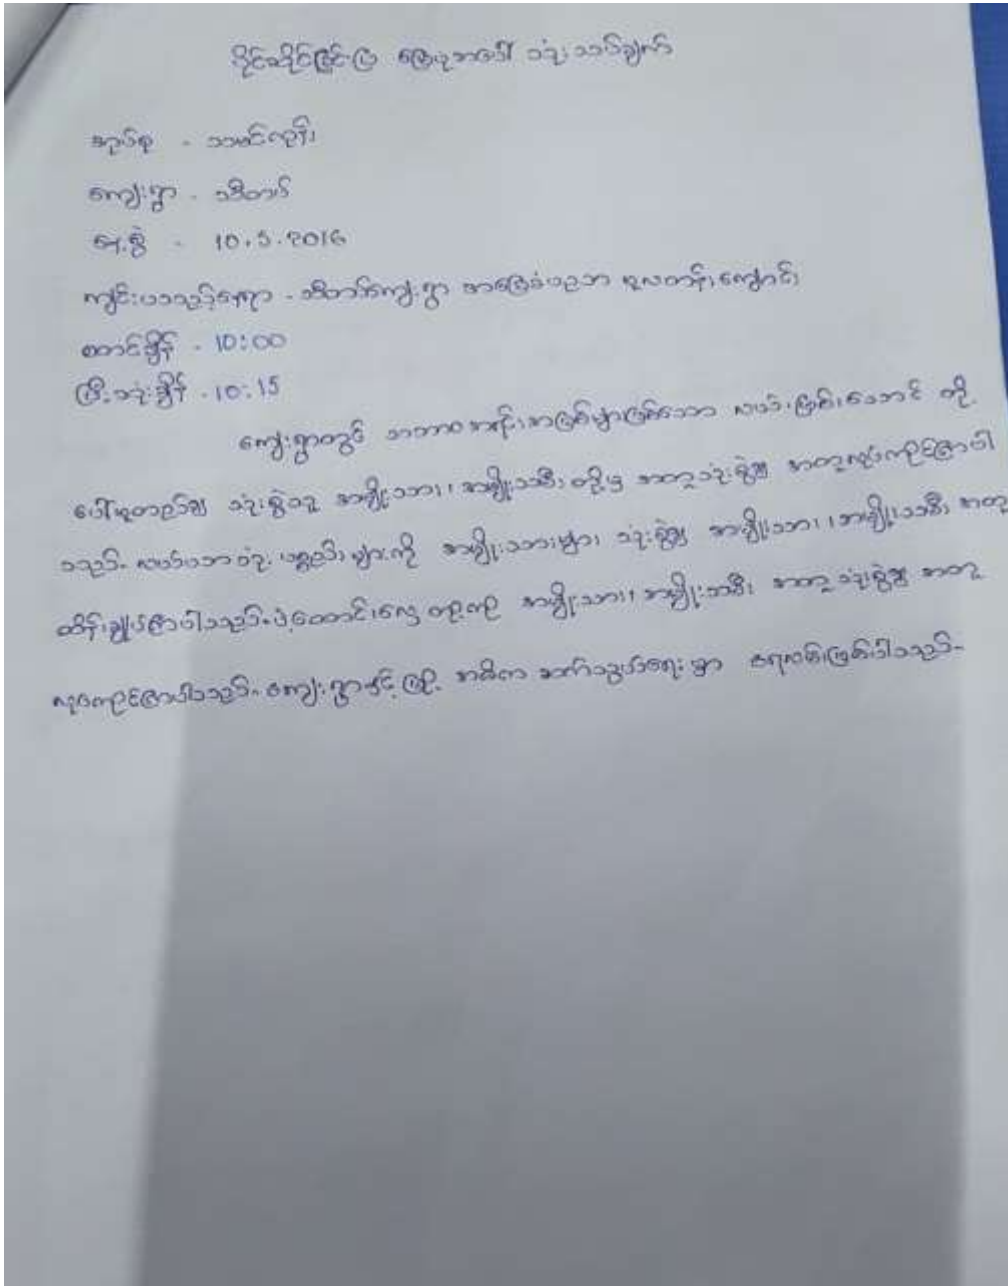 ပိုင်ဆိုင်ခြင်းပြ မြေပုံအပေါ် သုံးသပ်ချက်
အုပ်စု - သမင်ကုန်း
ကျေးရွာ - သီတပ်
နေ့စွဲ - 10.5.2016
ကျင်းပသည့်နေရာ - သီတပ်ကျေးရွာ အခြေခံပညာ မူလတန်းကျောင်း
စတင်ချိန် - 10:00
ပြီးသုံးချိန် - 10:15
ကျေးရွာတွင် သဘာဝအရင်းအမြစ်များဖြစ်သော လယ်၊ မြစ်၊ တောင် တို့
ပေါ်မူတည်၍ သုံးစွဲသူ အမျိုးသား၊ အမျိုးသမီး တို့မှ အတူသုံးစွဲ၍ အတူလုပ်ကိုင်ကြပါ
သည်။ လယ်ယာသုံး ပစ္စည်း များကို အမျိုးသားများ သုံးစွဲ၍ အမျိုးသား၊ အမျိုးသမီး အတူ
ထိန်းချုပ်ကြပါသည်။ ပဲ့ထောင်းလှေ တို့ကို အမျိုးသား၊ အမျိုးသမီး အတူသုံးစွဲ၍ အတူ
လုပ်ကိုင်ကြပါသည်။ ကျေးရွာနှင့် မြို့ အဓိက ဆက်သွယ်ရေး မှာ ရေလမ်းဖြစ်ပါသည်။